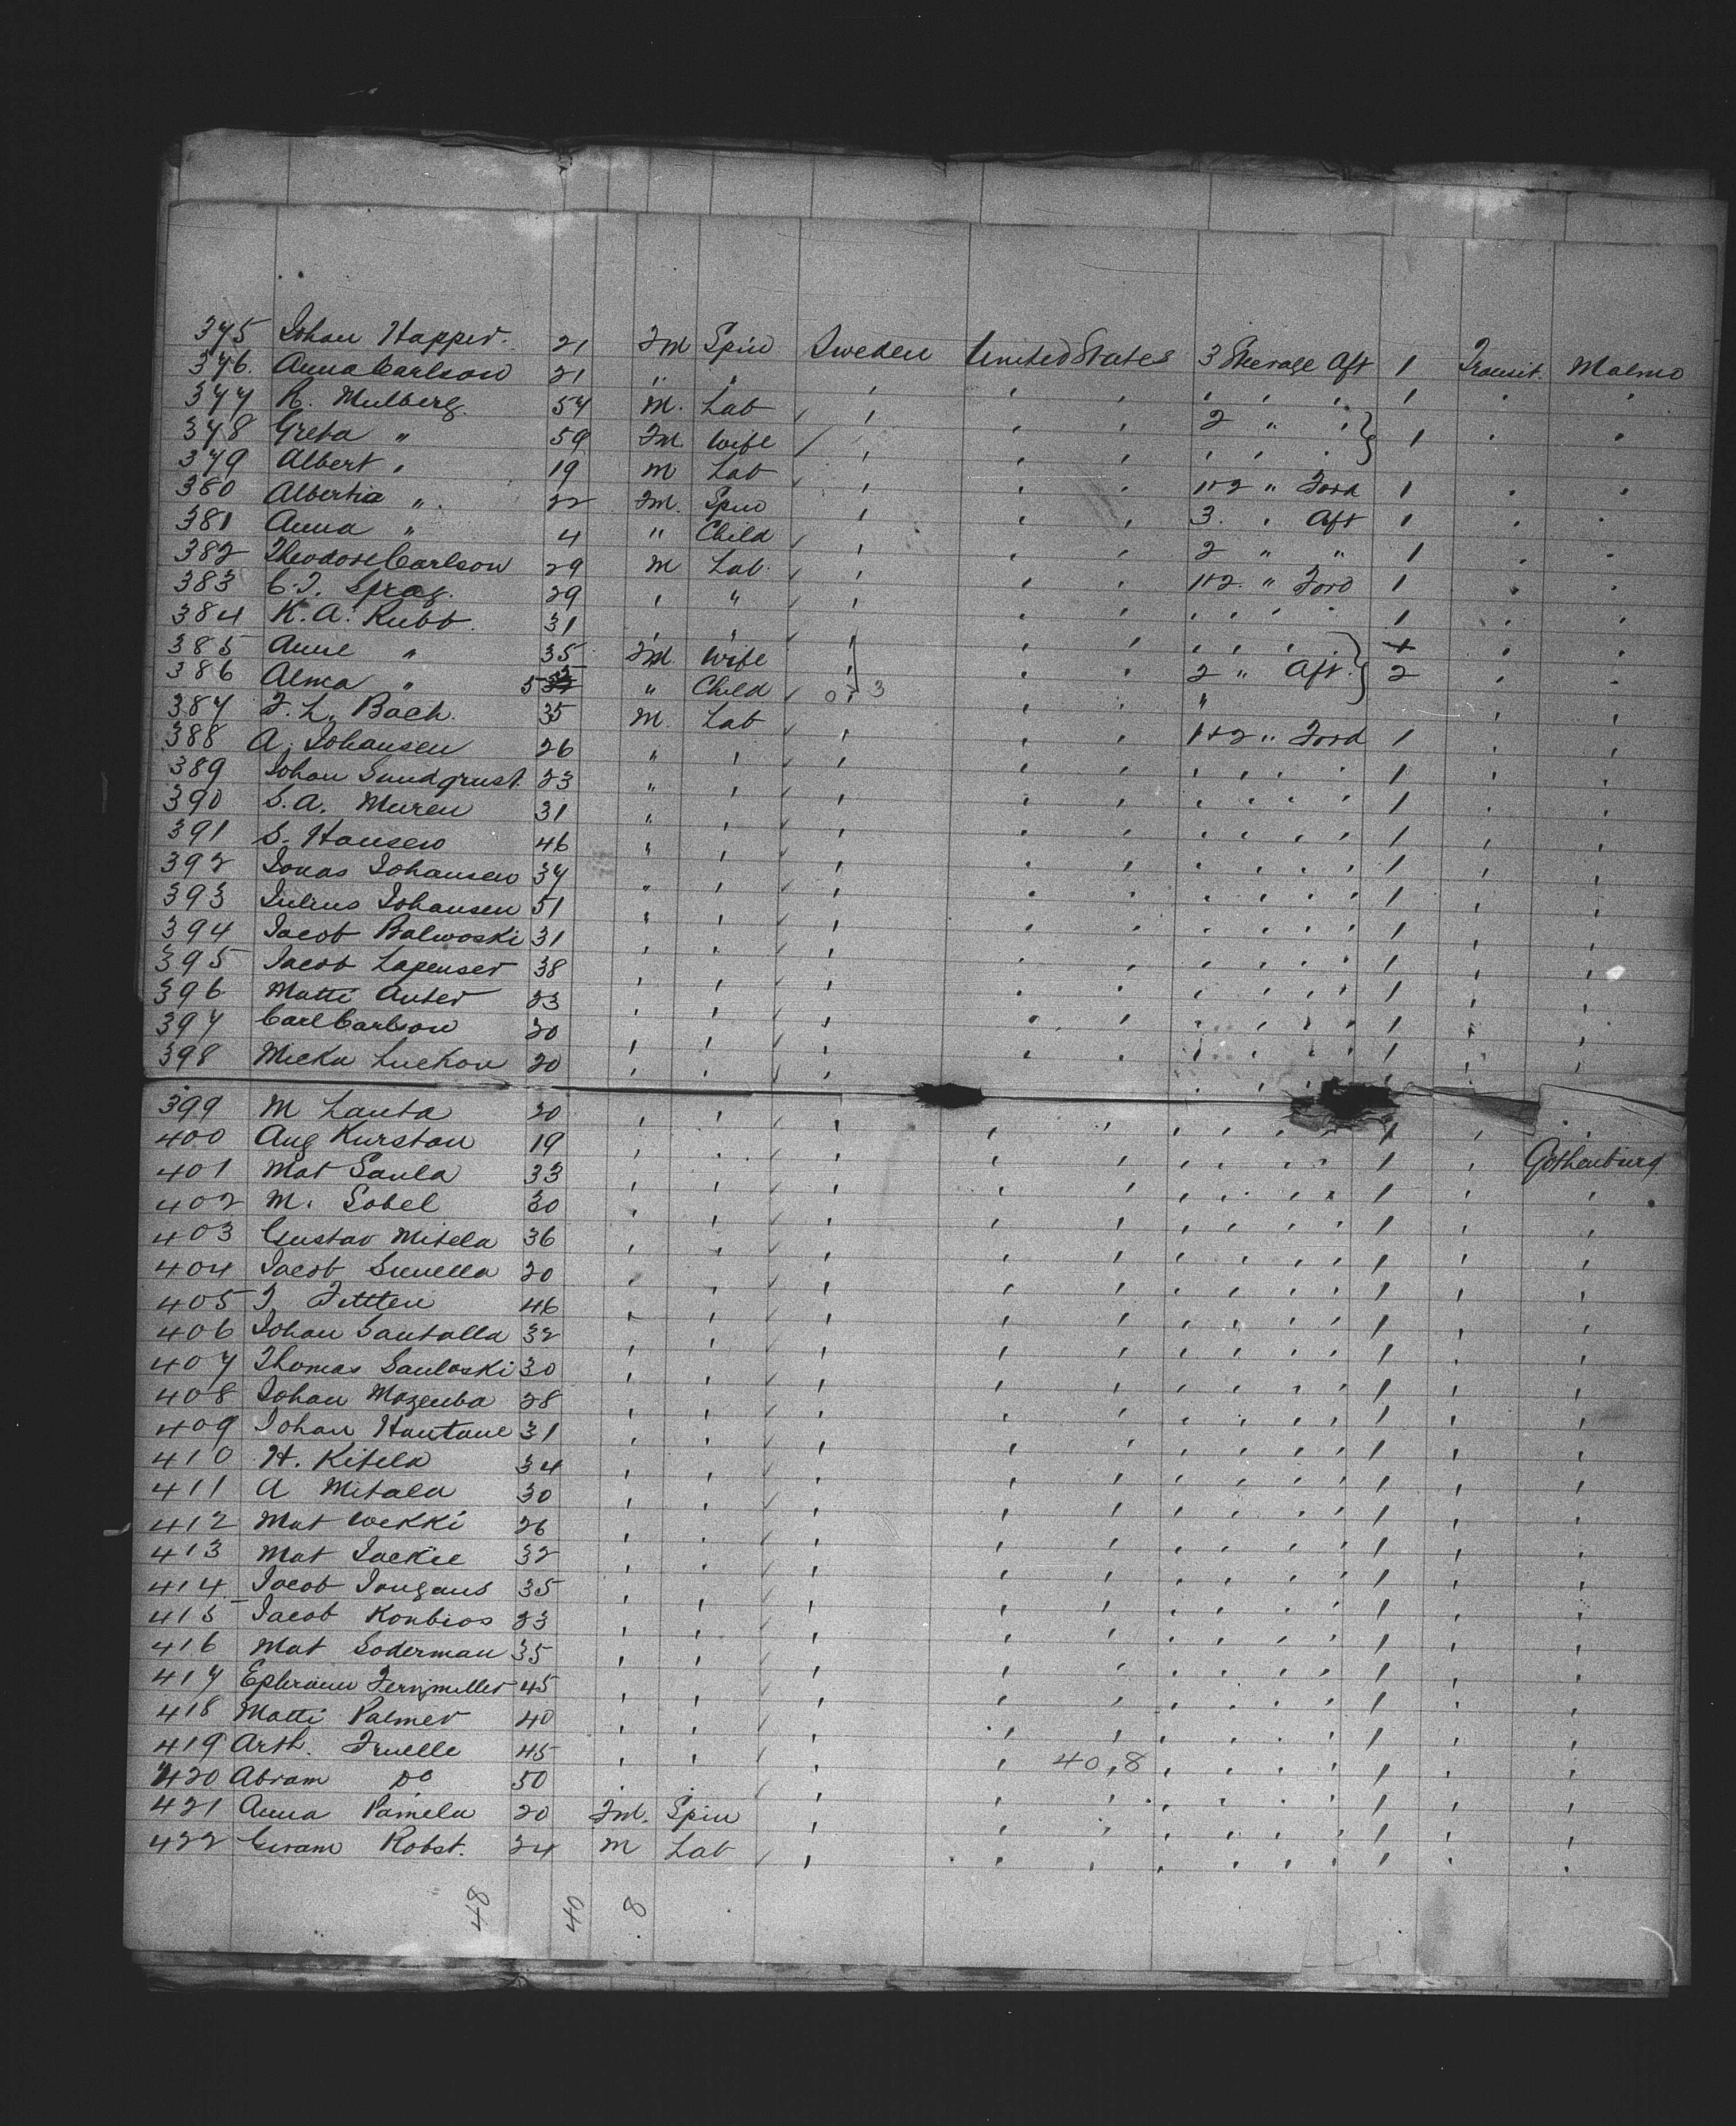 375 Johan Happer. 21 Fm Spin Sweden United States 3 Steerage Aft 1 Transit. Malmo
376. Anna Carlson 21 " " ' ' ' ' ' ' 1 ' '
377 R. Mulberg. 54 M. Lab ' ' ' 2 " " 1 ' '
378 Greta " 59 Fm Wife ' ' ' ' ' '
379 Albert " 19 M Lab ' ' ' 1+2 " Ford 1 ' '
380 Albertia " 22 Fm. Spin ' ' ' 3. ' Aft 1 ' '
381 Anna " 4 " Child ' ' ' 2 " " 1 ' '
382 Theodore Carlson 29 M Lab. ' ' ' 1+2. " Ford 1 ' '
383 C. J. Sprag. 29 ' " ' ' ' ' ' ' 1 ' '
384 K. A. Rubb. 31 ' ' ' ' ' ' ' ' ' '
385 Anne " 35 Fm Wife ' ' ' 2 " Aft. 2 ' '
386 Alma " 5 " Child 0 + 3 ' ' " ' '
387 F. L. Bach. 35 M. Lab ' ' ' 1+2 " Ford 1 ' '
388 A. Johansen 26 " ' ' ' ' ' ' ' ' 1 ' '
389 Johan Sundqrust. 23 " ' ' ' ' ' ' ' ' 1 ' '
390 S. A. Muren 31 " ' ' ' ' ' ' ' ' 1 ' '
391 S. Hansen 46 " ' ' ' ' ' ' ' ' 1 ' '
392 Jonas Johansen 37 " ' ' ' ' ' ' ' ' 1 ' '
393 Julius Johansen 51 ' ' ' ' ' ' ' ' ' 1 ' '
394 Jacob Balwoski 31 ' ' ' ' ' ' ' ' ' 1 ' '
395 Jacob Lapenser 38 ' ' ' ' ' ' ' ' ' 1 ' '
396 Matti Anter 23 ' ' ' ' ' ' ' ' ' 1 ' '
397 Carl Carlson 20 ' ' ' ' ' ' ' ' ' 1 ' '
398 Micka Luckon 20 ' ' ' ' ' ' ' '
399 M Lanta 20 ' ' ' ' ' ' ' ' ' 1 ' '
400 Aug Kurstan 19 ' ' ' ' ' ' ' ' ' 1 ' Gothenburg
401 Mat Saula 33 ' ' ' ' ' ' ' ' ' 1 ' '
402 M. Sobel 30 ' ' ' ' ' ' ' ' ' 1 ' '
403 Gustav Mitela 36 ' ' ' ' ' ' ' ' ' 1 ' '
404 Jacob Sunella 20 ' ' ' ' ' ' ' ' ' 1 ' '
405 46 ' ' ' ' ' ' ' ' ' 1 ' '
406 Johan Santalla 32 ' ' ' ' ' ' ' ' ' 1 ' '
407 Thomas Sauloski 30 ' ' ' ' ' ' ' ' ' 1 ' '
408 Johan Mozenba 28 ' ' ' ' ' ' ' ' ' 1 ' '
409 Johan Hantane 31 ' ' ' ' ' ' ' ' ' 1 ' '
410 H. Kitela 34 ' ' ' ' ' ' ' ' ' 1 ' '
411 A Mitala 30 ' ' ' ' ' ' ' ' ' 1 ' '
412 Mat Wekki 26 ' ' ' ' ' ' ' ' ' 1 ' '
413 Mat Jackie 32 ' ' ' ' ' ' ' ' ' 1 ' '
414 Jacob Jungans 35 ' ' ' ' ' ' ' ' ' 1 ' '
415 Jacob Konbios 23 ' ' ' ' ' ' ' ' ' 1 ' '
416 Mat Soderman 35 ' ' ' ' ' ' ' ' ' 1 ' '
417 Ephraim 45 ' ' ' ' ' ' ' ' ' 1 ' '
418 Matti Palmer 40 ' ' ' ' ' ' ' ' ' 1 ' '
419 Arth. Truelle 45 ' ' ' ' 40,8 ' ' ' ' 1 ' '
420 Abram Do 50 ' ' ' ' ' ' ' ' ' 1 ' '
421 Anna Pamela 20 Fm. Spin ' ' ' ' ' ' ' 1 ' '
422 Robst. 24 M Lab ' ' ' ' ' ' ' 1 ' '
48 40 8